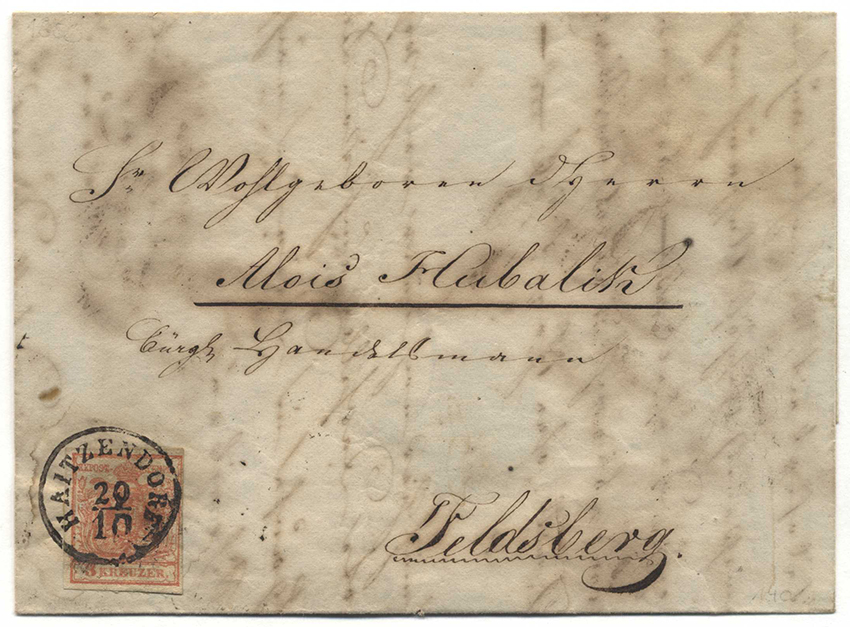 Sr Wohlgeboren Herrn
Alois Hubalik
bürgl Handelsmann
HAITZENDORF
20
10
KREUZER.
Feldsberg.
140